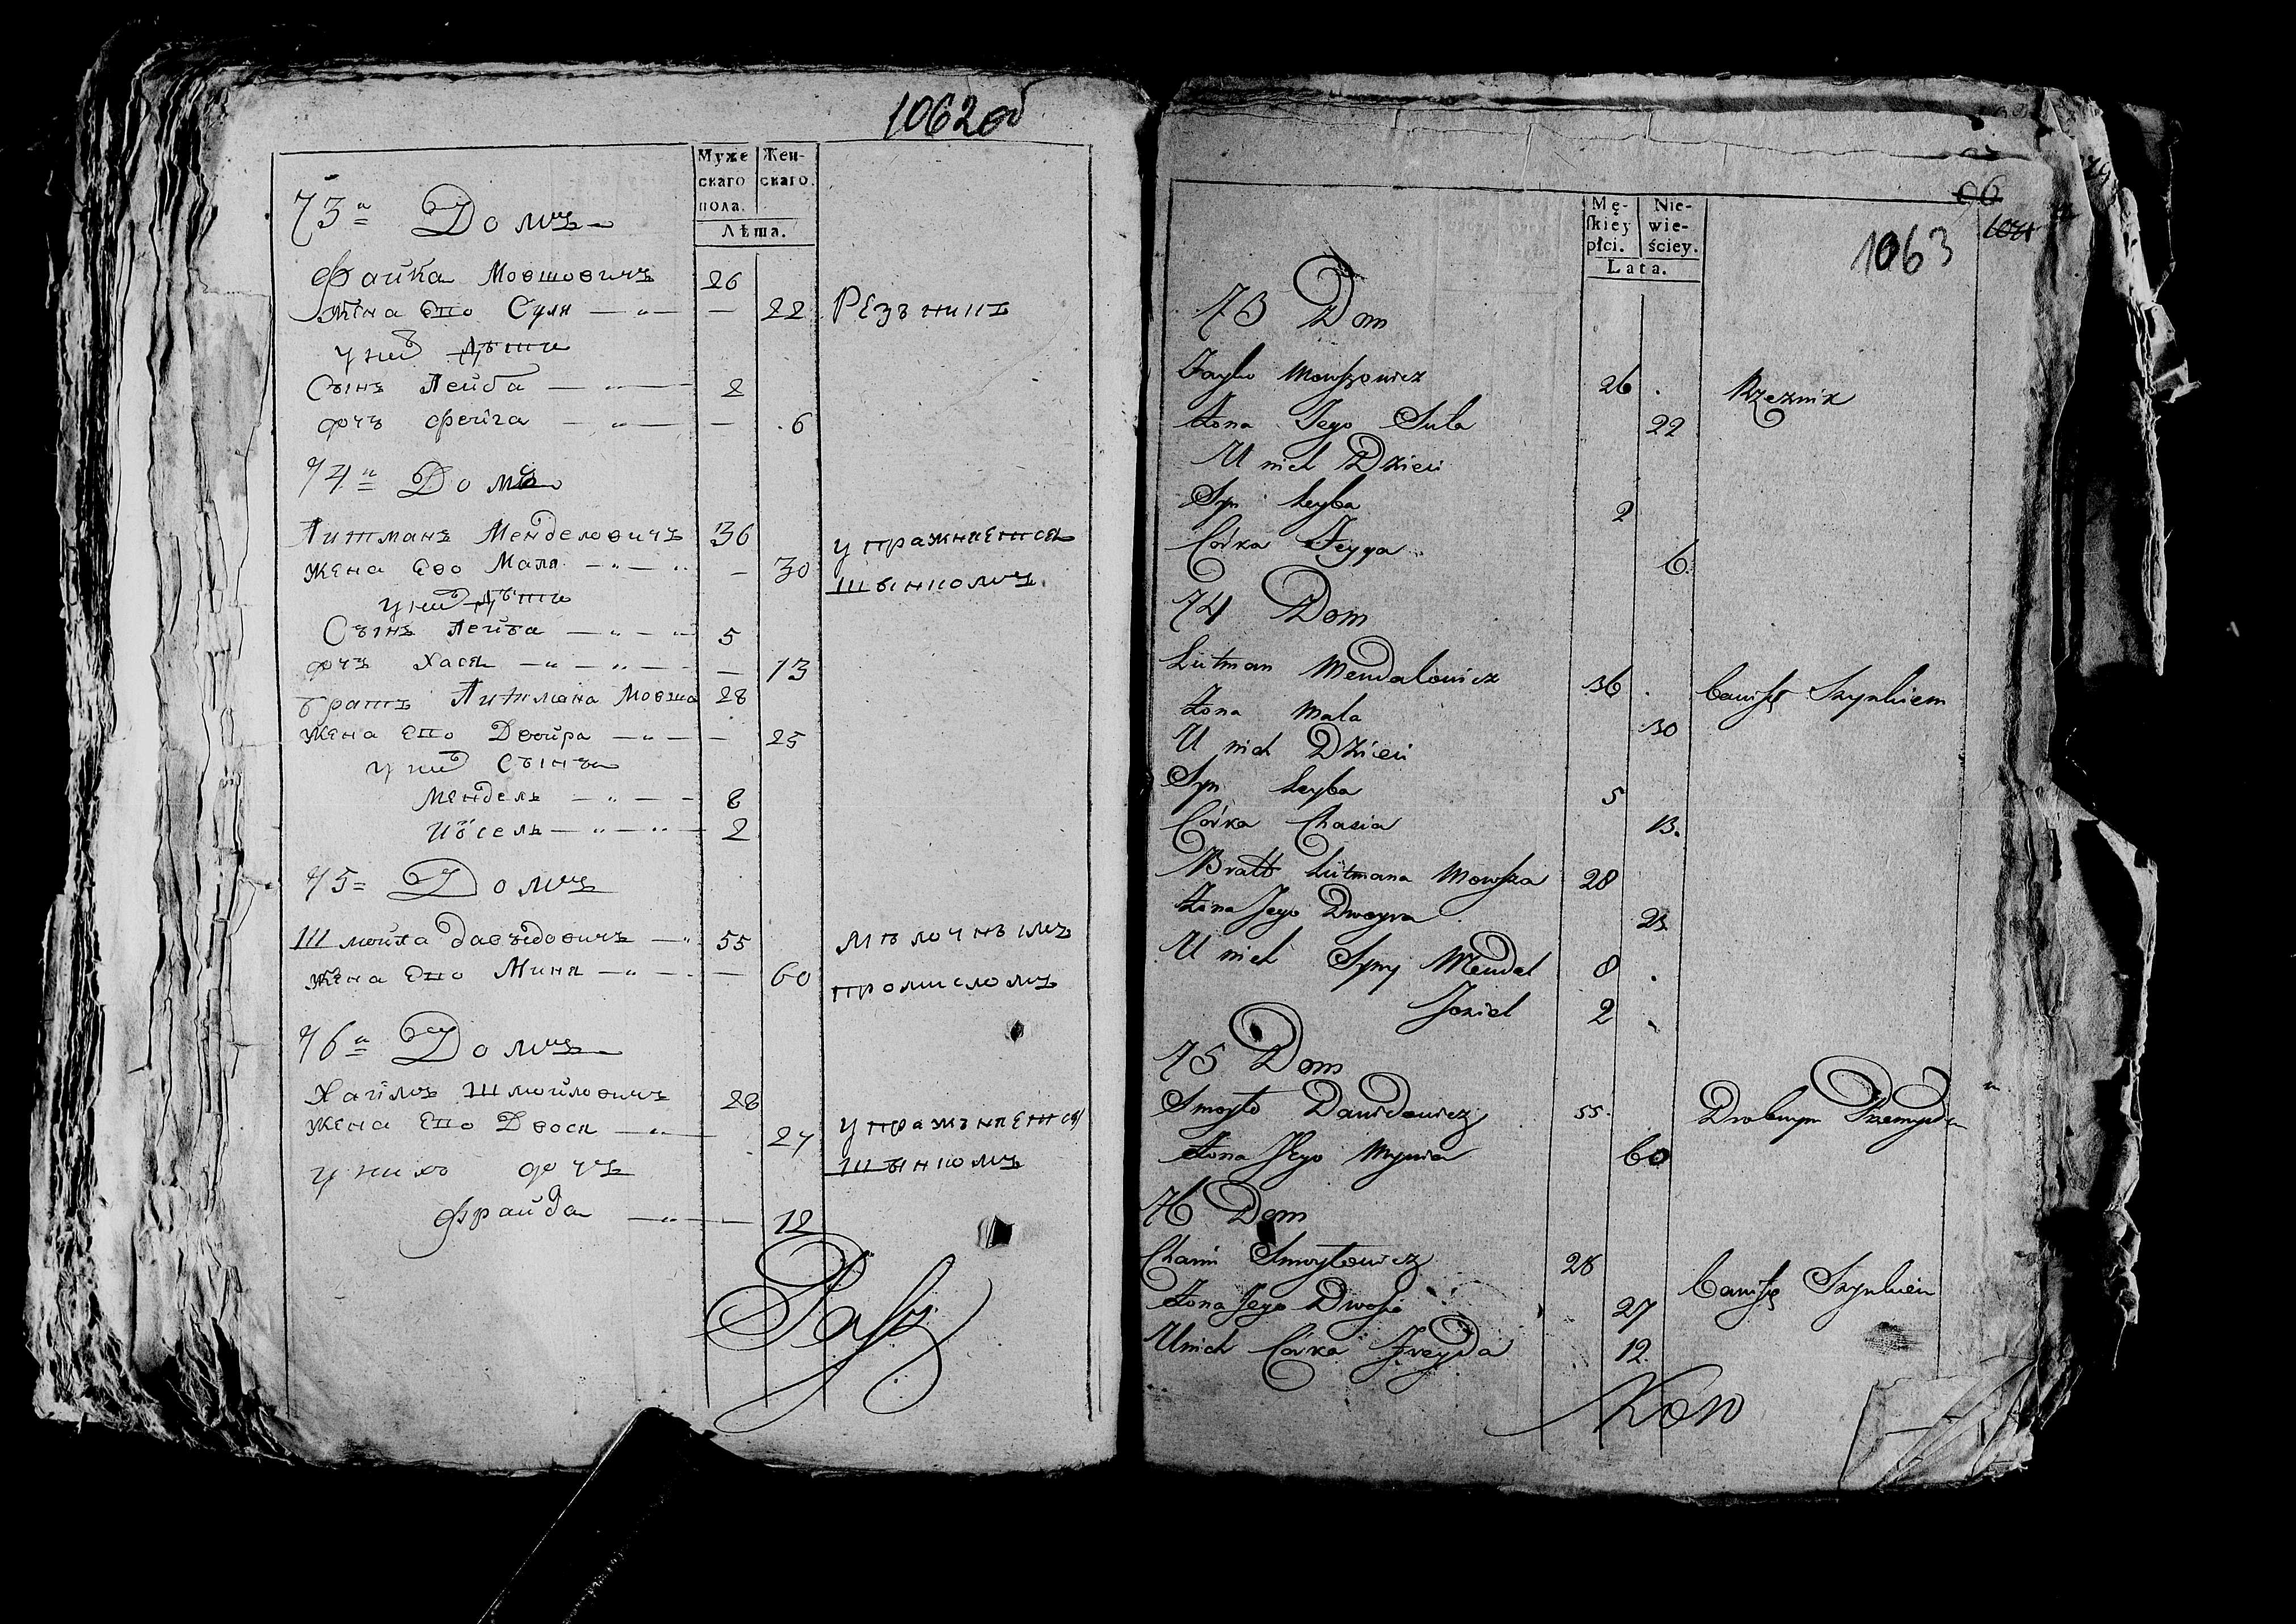 1062об
Муже Жен-
скаго скаго.
пола.
Лѣта.
73а Домъ
Файка Мовшовичъ 26
Жена Его Суля — „ — — 22 Резьникъ
у них Дѣти
Сынъ Лейба — „ — 2
дочъ Фейга — „ — — 6
74а Домъ
Литманъ Менделовичъ 36 упражняется
Жена Ево Маля — „ — „ — 30 шынкомъ
у них Дѣти
Сынъ Лейба — „ — „ 5
дочъ Хася — „ — „ — — 13
братъ Литмана Мовша 28
Жена Его Двойра — „ — — 25
у них Сыны
Мендель — „ — — 8
Иосель — „ — „ — 2
75= Домъ
Шмойла Давыдовичъ — „ 55 мѣлочнымъ
жена Его Миня — „ — — 60 промисломъ
76а Домъ
Хаимъ Шмойловичъ 28
Жена Его Двося — „ — 27 упражъняется
у нихъ дочъ шынкомъ
Фрайда — „ — — 12
96
Mę- Nie-
skiey wie-
płci. ściey.
Lata.
1063
73 Dom
Fayko Mowszowicz 26 . Rzeznik
Żona Jego Sula 22
U nich Dzieci
Syn Leyba 2
Córka Feyga 6.
74 Dom
Lutman Mendalowicz 36 . bawi się Szynkiem
Żona Mala 30
U nich Dzieci
Syn Leyba 5
Córka Chasia 13.
Bratt Lutmana Mowsza 28
Żona Jego Dweyra 25
U nich Syny Mendel 8 .
Joziel 2
75 Dom
Smoyło Dawidowicz 55. Drobnym Przemysłem
Żona Jego Mynia 60
76 Dom
Chaim Smoyłowicz 28 bawi się Szynkiem
Żona Jego Dwosia 27
U nich Córka Freyda 12.